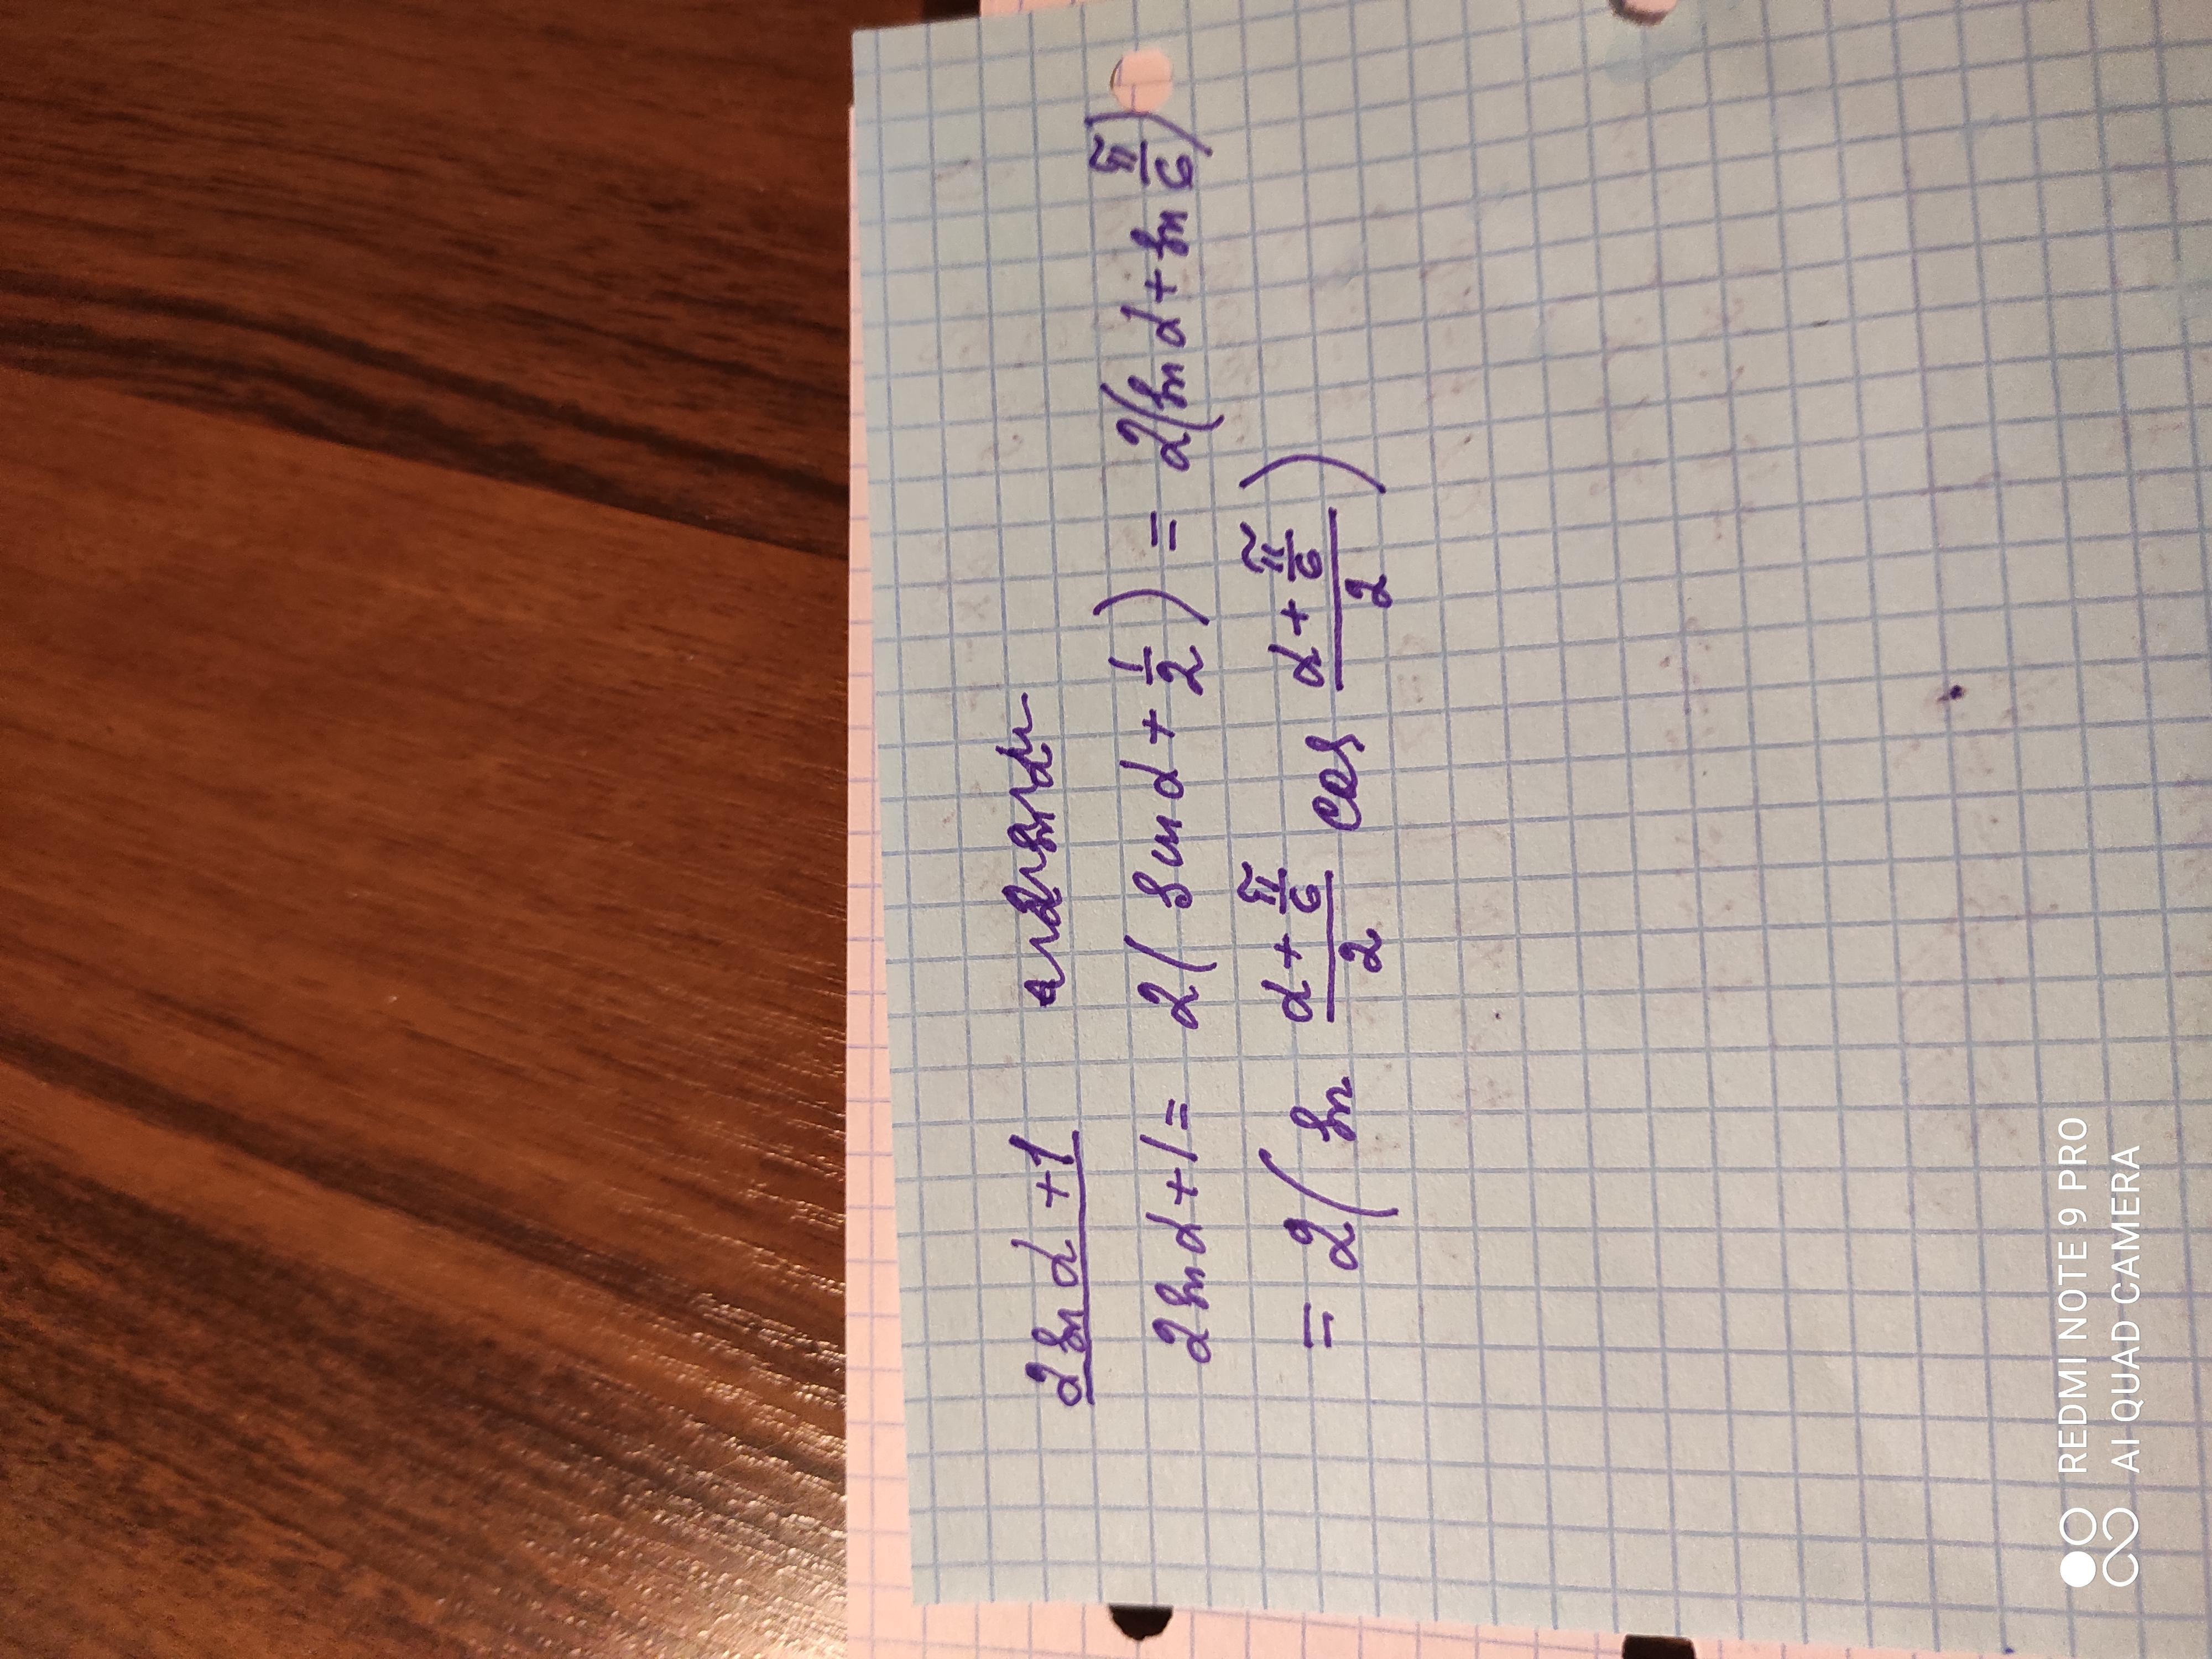 2 sin α + 1
2 sin α + 1 = 2( sin α + 1/2 ) = 2(sin α + sin π/6)
= 2( sin (α + π/6)/2 cos (α + π/6)/2 )
REDMI NOTE 9 PRO
AI QUAD CAMERA